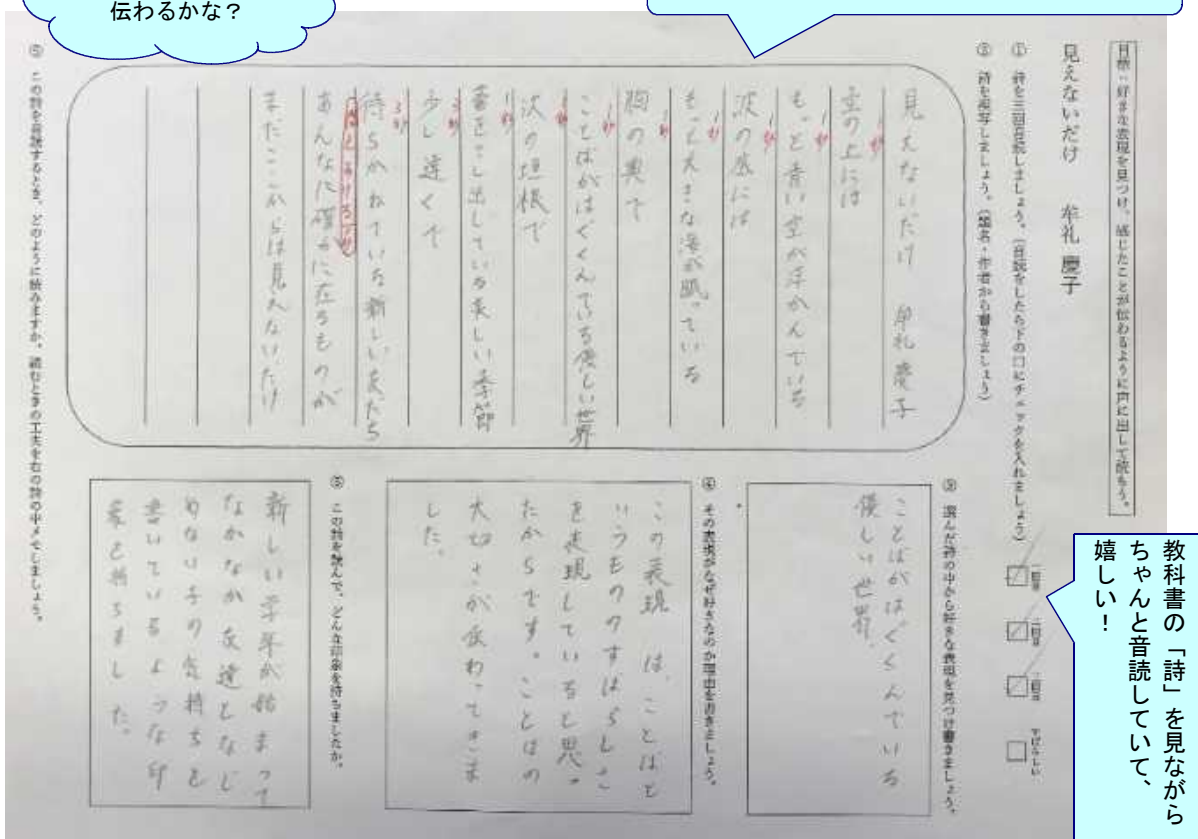 伝わるかな？
教科書の「詩」を見ながら
ちゃんと音読していて、
嬉しい！
目標：好きな表現を見つけ、感じたことが伝わるように声に出して読もう。
見えないだけ　牟礼 慶子
① 詩を三回音読しましょう。（音読をしたら下の口にチェックを入れましょう）
一回目
二回目
三回目
すばらしい
② 詩を視写しましょう。（題名・作者から書きましょう）
見えないだけ　牟礼慶子
空の上には
もっと青い空が浮かんでいる
波の底には
もっと大きな海が眠っている
胸の奥で
ことばがはぐくんでいる優しい世界
次の垣根で
蕾をさし出している美しい季節
少し遠くで
待ちかねている新しい友だち
あんなに確かに在るものが
まだここからは見えないだけ
③ 選んだ詩の中から好きな表現を見つけ書きましょう。
ことばがはぐくんでいる
優しい世界。
④ その表現がなぜ好きなのか理由を書きましょう。
この表現は、ことばと
いうもののすばらしさ
を表現していると思っ
たからです。ことばの
大切さが伝わってきま
した。
⑤ この詩を読んで、どんな印象を持ちましたか。
新しい学年が始まって
なかなか友達となじ
めない子の気持ちを
書いているような印
象を持ちました。
この詩を音読するとき、どのように読みますか。読むときの工夫を右の詩の中メモしましょう。